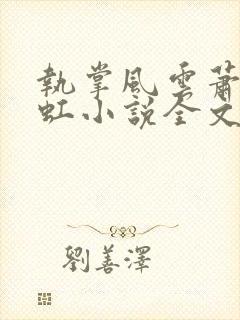 執掌風雲蕭
虹小說全文
劉善澤